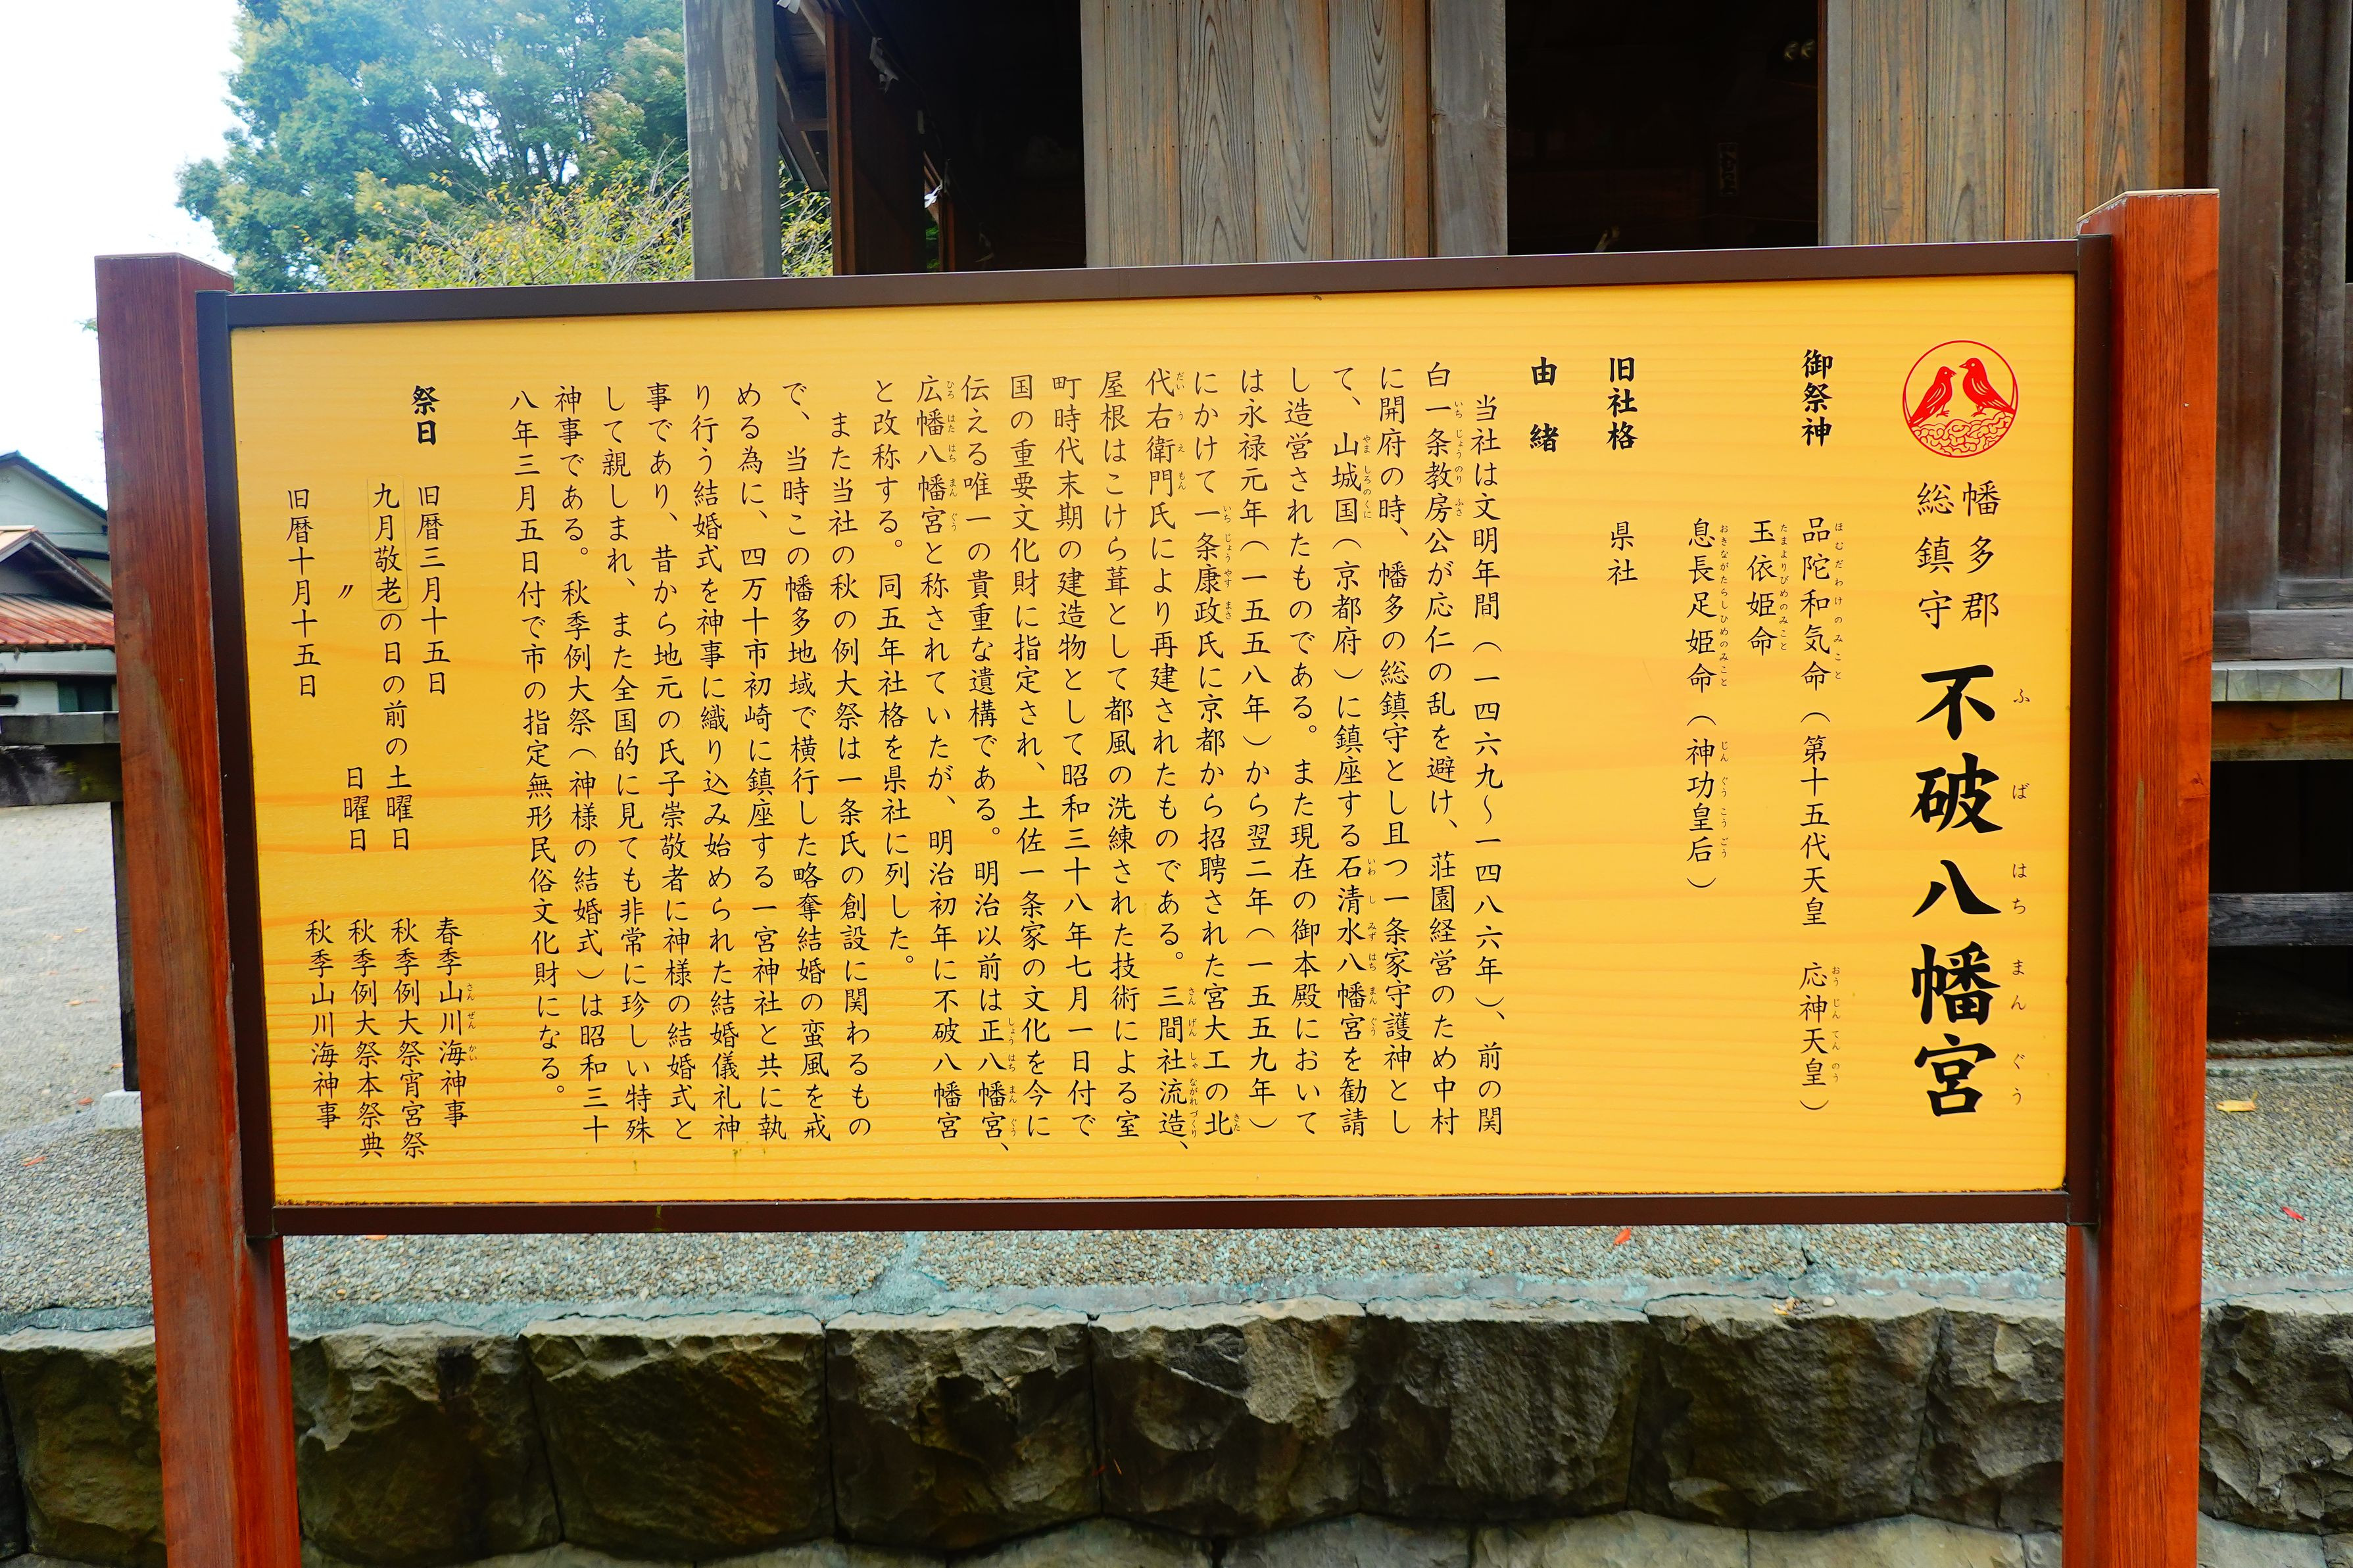 幡多郡
総鎮守
不破八幡宮
ふばはちまんぐう
御祭神
品陀和気命（第十五代天皇　応神天皇）
ほむだわけのみこと　おうじんてんのう
玉依姫命
たまよりびめのみこと
息長足姫命（神功皇后）
おきながたらしひめのみこと　じんぐうこうごう
旧社格　県社
由緒
当社は文明年間（一四六九〜一四八六年）、前の関
白一条教房公が応仁の乱を避け、荘園経営のため中村
いちじょうのりふさ
に開府の時、幡多の総鎮守とし且つ一条家守護神とし
て、山城国（京都府）に鎮座する石清水八幡宮を勧請
やましろのくに　いわしみずはちまんぐう
し造営されたものである。また現在の御本殿において
は永禄元年（一五五八年）から翌二年（一五五九年）
にかけて一条康政氏に京都から招聘された宮大工の北
いちじょうやすまさ　きた
代右衛門氏により再建されたものである。三間社流造、
だいうえもん　さんげんしゃながれづくり
屋根はこけら葺として都風の洗練された技術による室
町時代末期の建造物として昭和三十八年七月一日付で
国の重要文化財に指定され、土佐一条家の文化を今に
伝える唯一の貴重な遺構である。明治以前は正八幡宮、
しょうはちまんぐう
広幡八幡宮と称されていたが、明治初年に不破八幡宮
ひろはたはちまんぐう
と改称する。同五年社格を県社に列した。
また当社の秋の例大祭は一条氏の創設に関わるもの
で、当時この幡多地域で横行した略奪結婚の蛮風を戒
める為に、四万十市初崎に鎮座する一宮神社と共に執
り行う結婚式を神事に織り込み始められた結婚儀礼神
事であり、昔から地元の氏子崇敬者に神様の結婚式と
して親しまれ、また全国的に見ても非常に珍しい特殊
神事である。秋季例大祭（神様の結婚式）は昭和三十
八年三月五日付で市の指定無形民俗文化財になる。
祭日
旧暦三月十五日　春季山川海神事
さんぜんかい
九月敬老の日の前の土曜日　秋季例大祭宵宮祭
〃　日曜日　秋季例大祭本祭典
旧暦十月十五日　秋季山川海神事